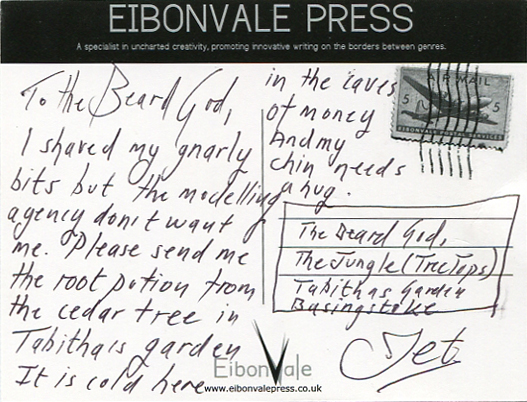 EIBONVALE PRESS
A specialist in uncharted creativity, promoting innovative writing on the borders between genres.
To the Beard God,
I shaved my gnarly
bits but the modelling
agency don't want
me. Please send me
the root potion from
the cedar tree in
Tabitha's garden
It is cold here
in the caves
of money
And my
chin needs
a hug.
AIR MAIL
5 5
EIBONVALE
The Beard God,
The Jungle (Tree Tops)
Tabithas Garden
Basingstoke
Jet
EibonVale
www.eibonvalepress.co.uk